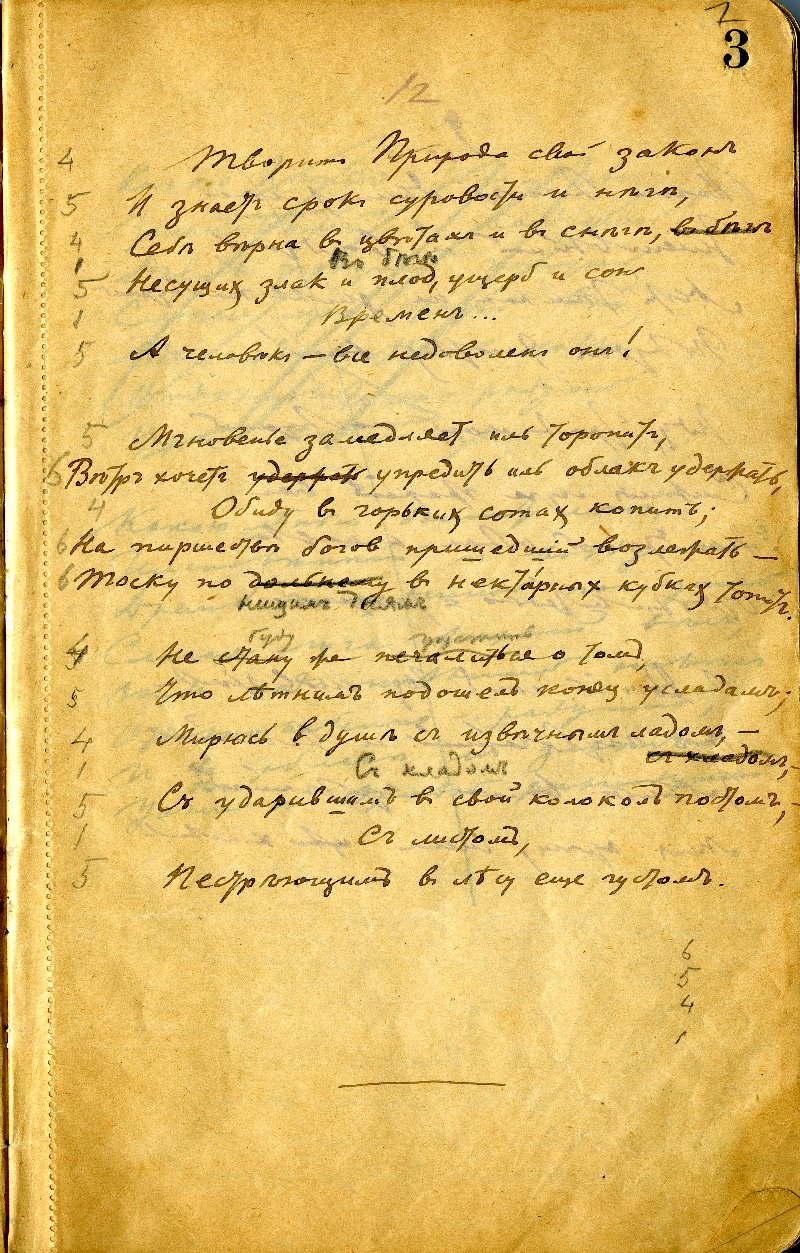 2
3
12
4 Творитъ Природа свой законъ
5 И знаетъ срокъ суровости и нѣги,
4 Себѣ вѣрна въ цвѣтахъ и въ снѣгѣ, въ бѣгѣ
1 Въ бѣгѣ
5 Несущихъ злак и плод, ущерб и сонъ
1 Временъ...
5 А человѣкъ – все недоволенъ онъ!
5 Мгновенье замедляетъ иль торопитъ,
6 Вѣтръ хочетъ удержать упредить иль облакъ удержать,
4 Обиду въ горькихъ сотахъ копитъ;
6 На пиршествѣ богов пришедшій возлежать –
6 Тоску по дольнему въ нектарныхъ кубкахъ топитъ.
нищимъ далямъ
буду грустить
4 Не стану же печалиться о томъ,
5 Что лѣтнимъ подошелъ конец усладамъ;
4 Мирюсь въ душѣ съ извѣчнымъ ладомъ, –
съ хладомъ, –
1 Съ хладомъ
5 Съ ударившимъ въ свой колоколъ постомъ, –
1 Съ листомъ,
5 Пестрѣющимъ въ лѣсу еще густомъ.
6
5
4
1